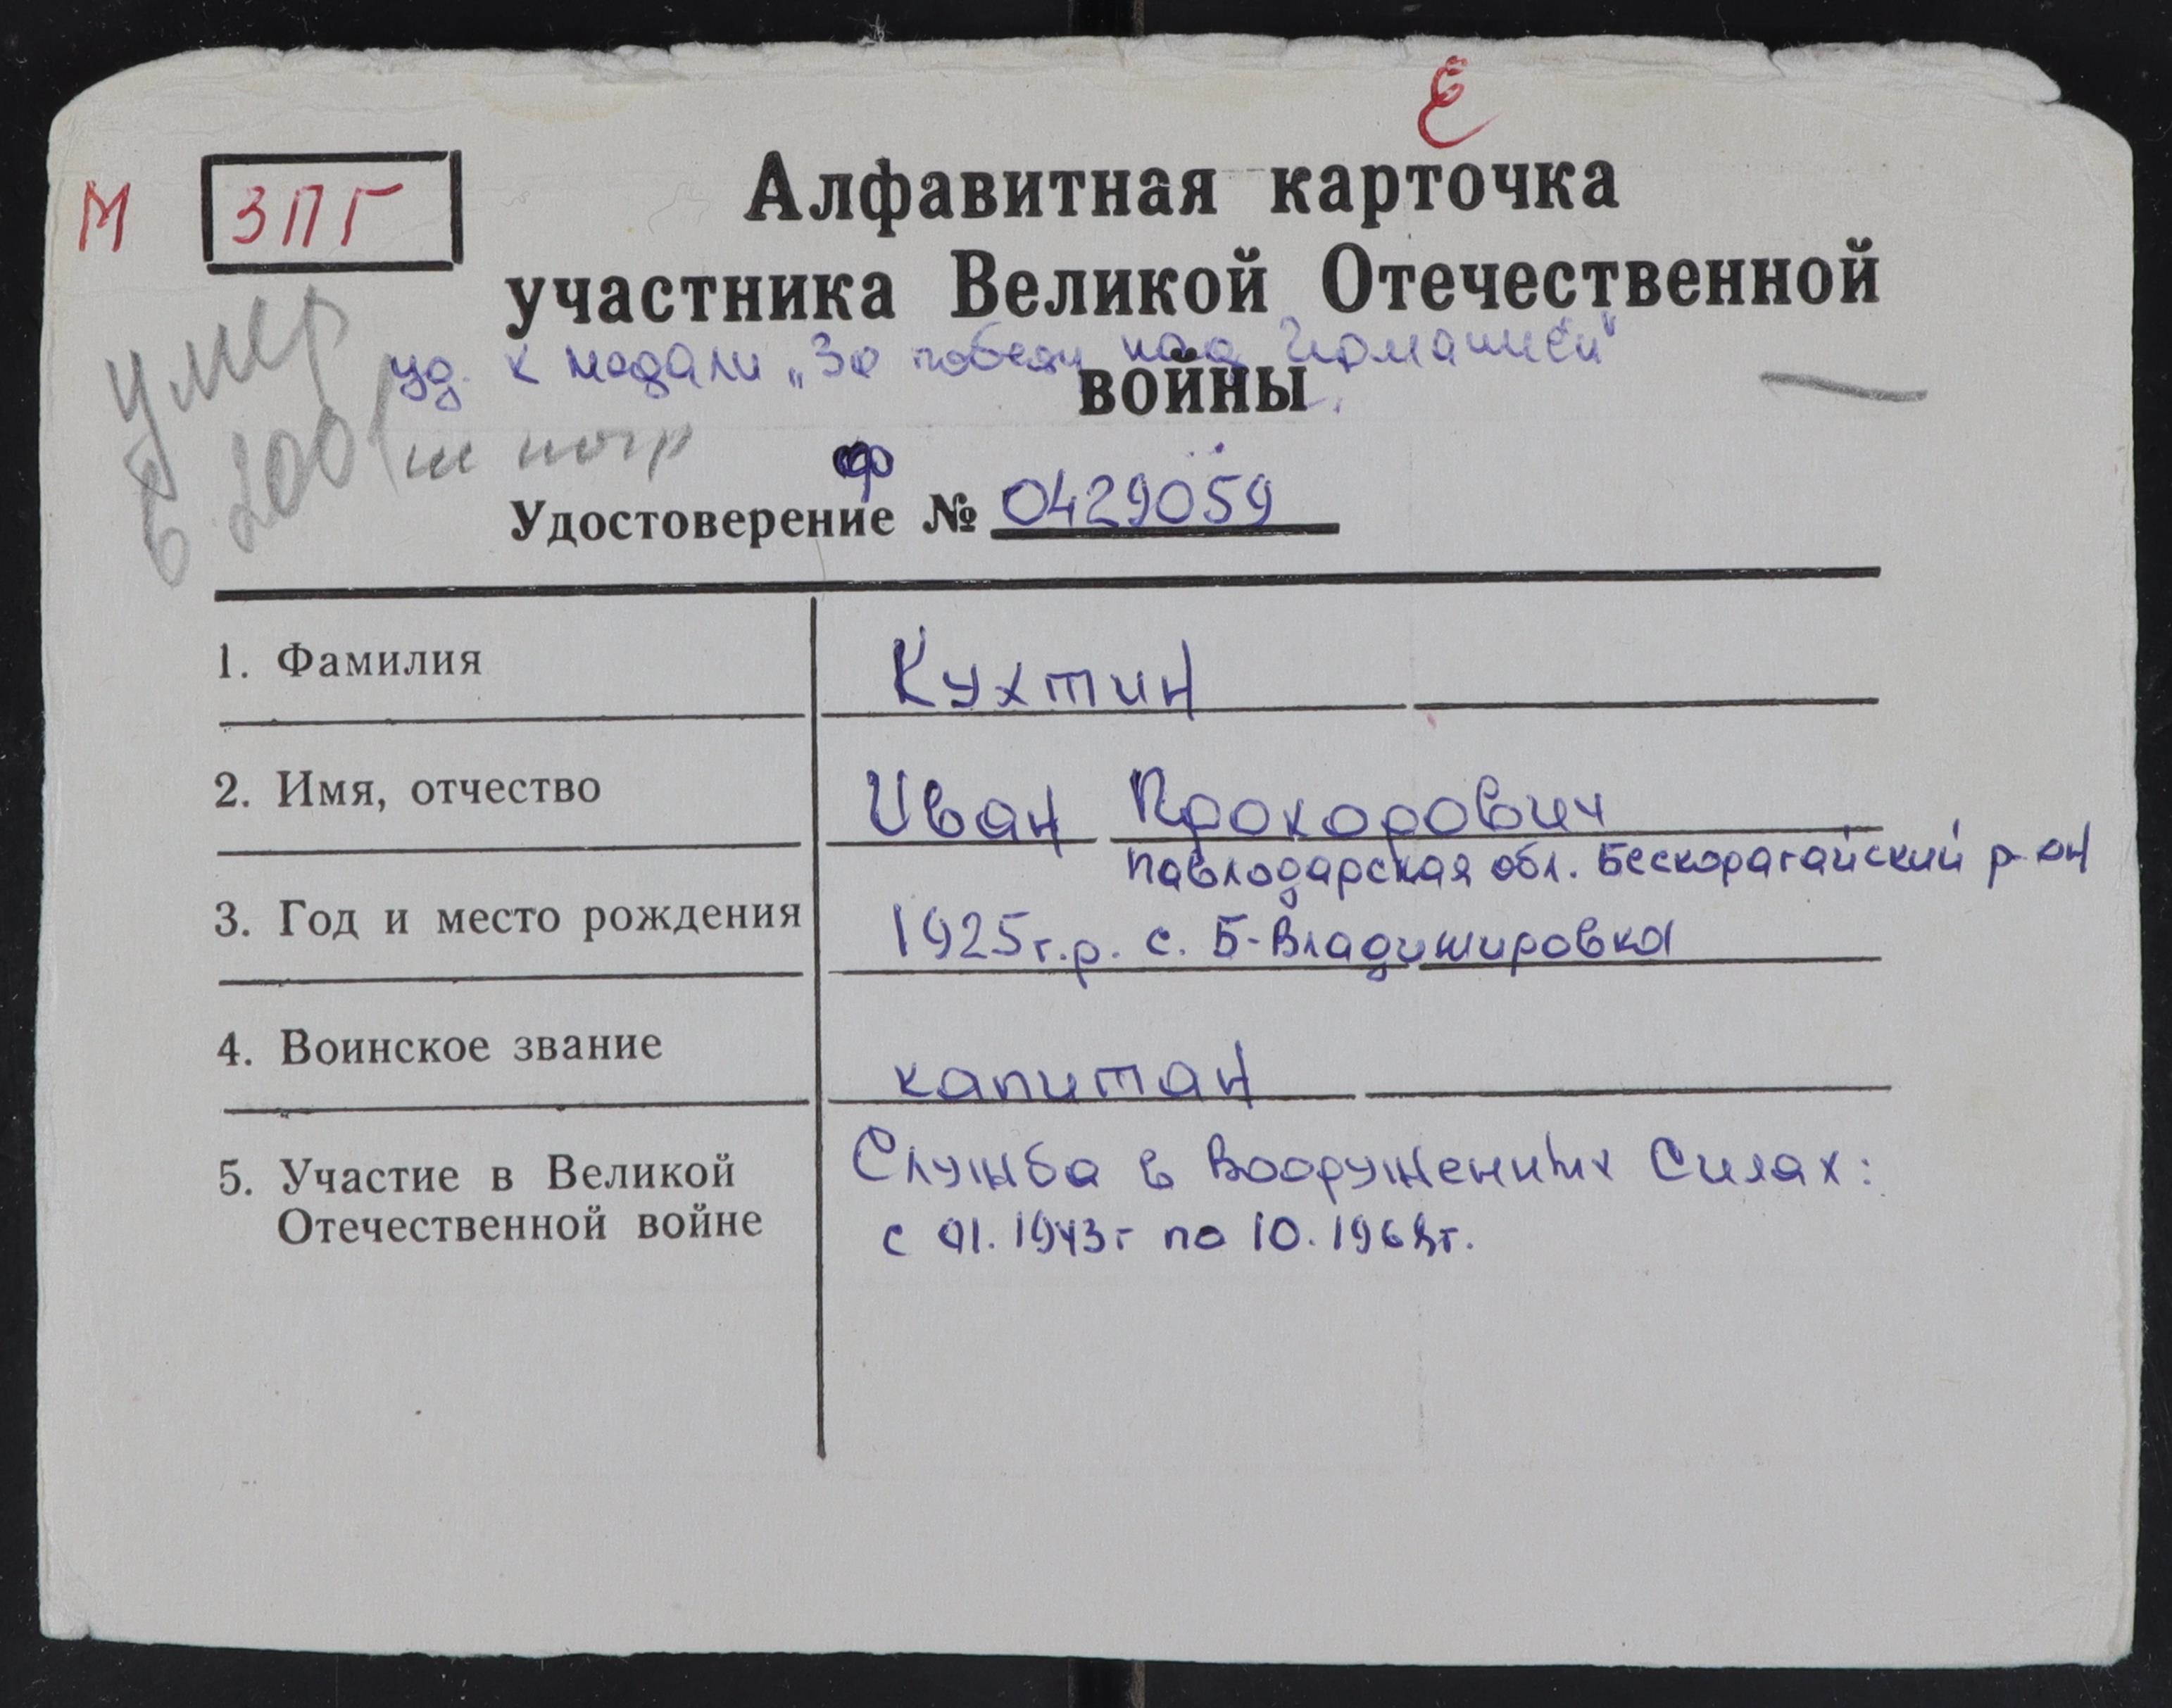 Е
М ЗПГ
Алфавитная карточка
участника Великой Отечественной
уд. к медали „За победу над Германией"
войны
умер
в 2001
Ф
Удостоверение № 0429059
1. Фамилия Кухтин
2. Имя, отчество Иван Прохорович
Павлодарская обл. Бескарагайский р-он
3. Год и место рождения 1925г.р. с. Б-Владимировка
4. Воинское звание капитан
5. Участие в Великой Служба в Вооружених Силах:
Отечественной войне с 01.1943г по 10.